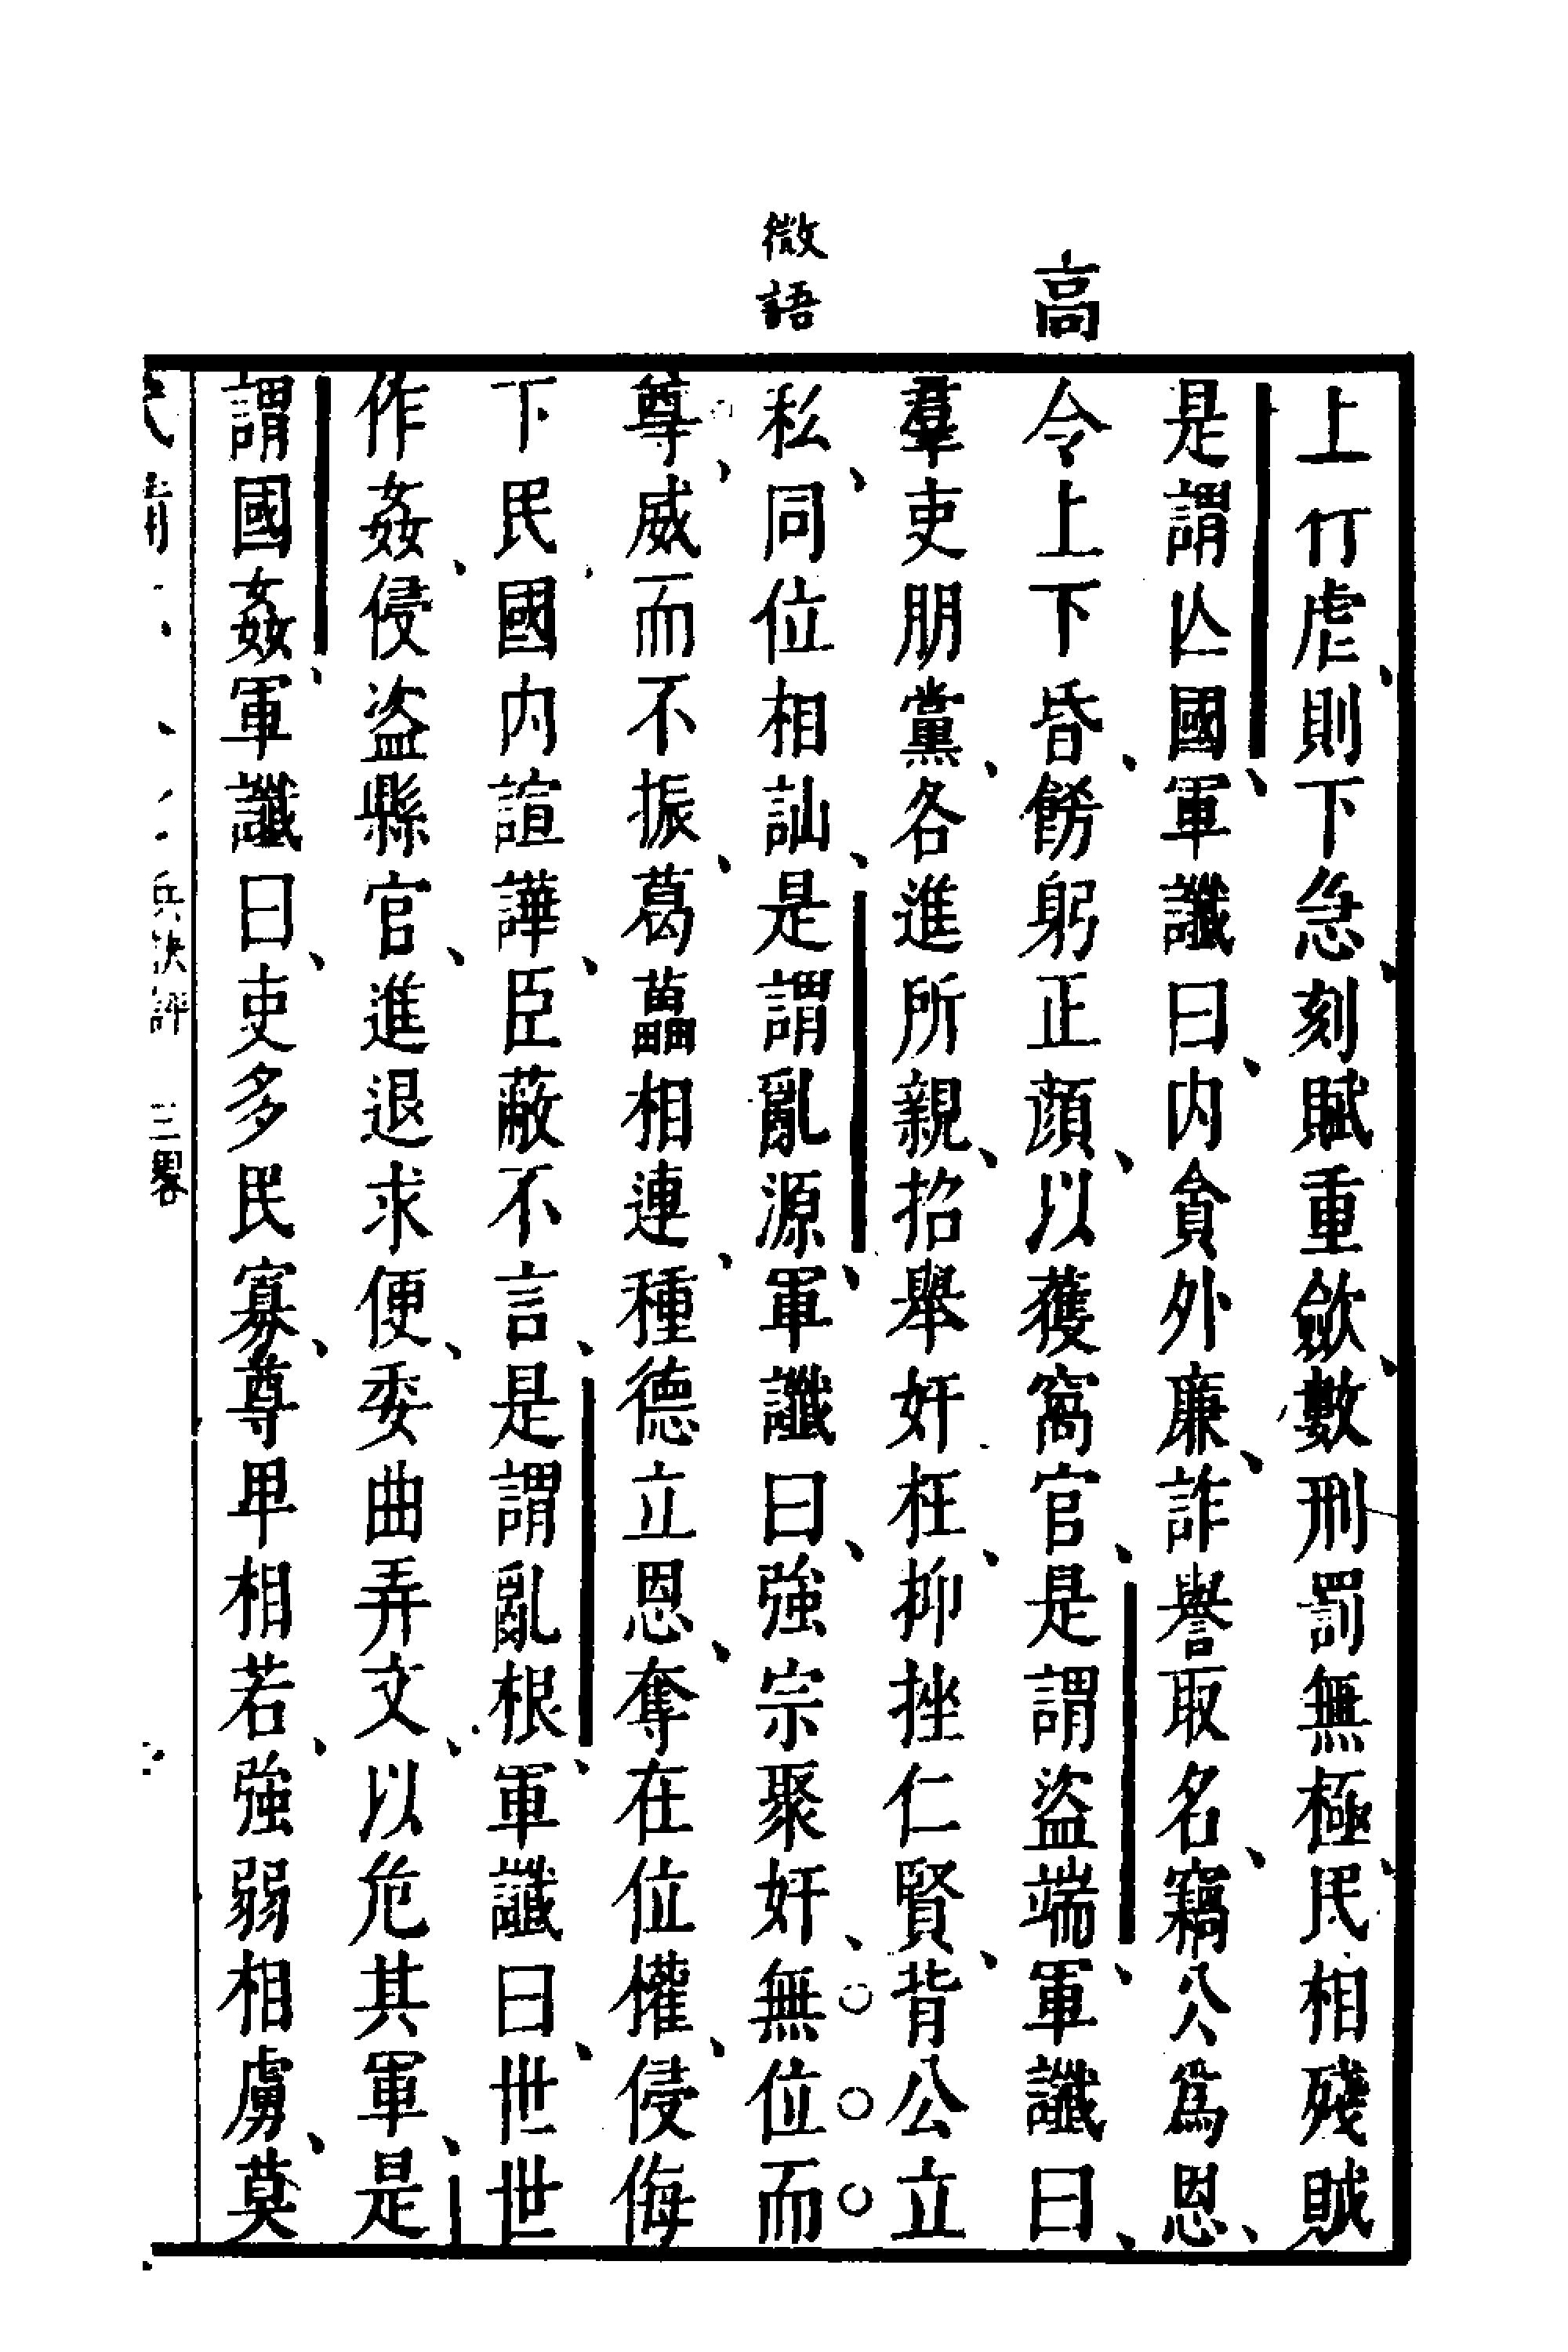 高
微語
上行虐則下急刻賦重斂數刑罰無極民相殘賊
是謂亾國軍讖曰内貪外廉詐譽取名竊公爲恩
令上下昏餝躬正顔以獲窩官是謂盜端軍讖曰
羣吏朋黨各進所親招舉奸枉抑挫仁賢背公立
私同位相訕是謂亂源軍讖曰強宗聚奸無位而
尊威而不振葛藟相連種德立恩奪在位權侵侮
下民國内諠譁臣蔽不言是謂亂根軍讖曰世世
作姦侵盜縣官進退求便委曲弄文以危其軍是
謂國姦軍讖曰吏多民寡尊卑相若強弱相虜莫
兵決評 三畧